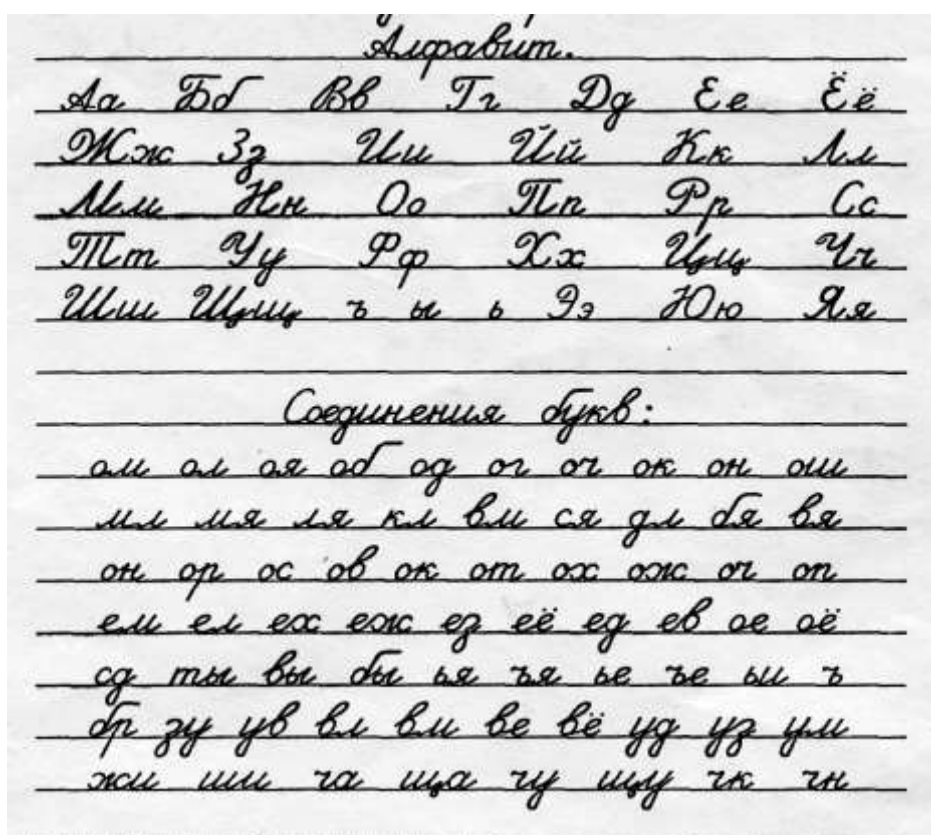 Алфавит.
Аа Бб Вв Гг Дд Ее Ёё
Жж Зз Ии Йй Кк Лл
Мм Нн Оо Пп Рр Сс
Тт Уу Фф Хх Цц Чч
Шш Щщ ъ ы ь Ээ Юю Яя
Соединения букв:
ом ол оя об од ог оч ок он ош
мл мя ля кл вм ся дл бя вя
он ор ос ов ок от ох ож оч оп
ем ел ех еж ез её ед ев ое оё
сд ты вы бы ья ъя ье ъе ьи ъ
бр зу ув вл вм ве вё уд уз ум
жи ши ча ща чу щу чк чн